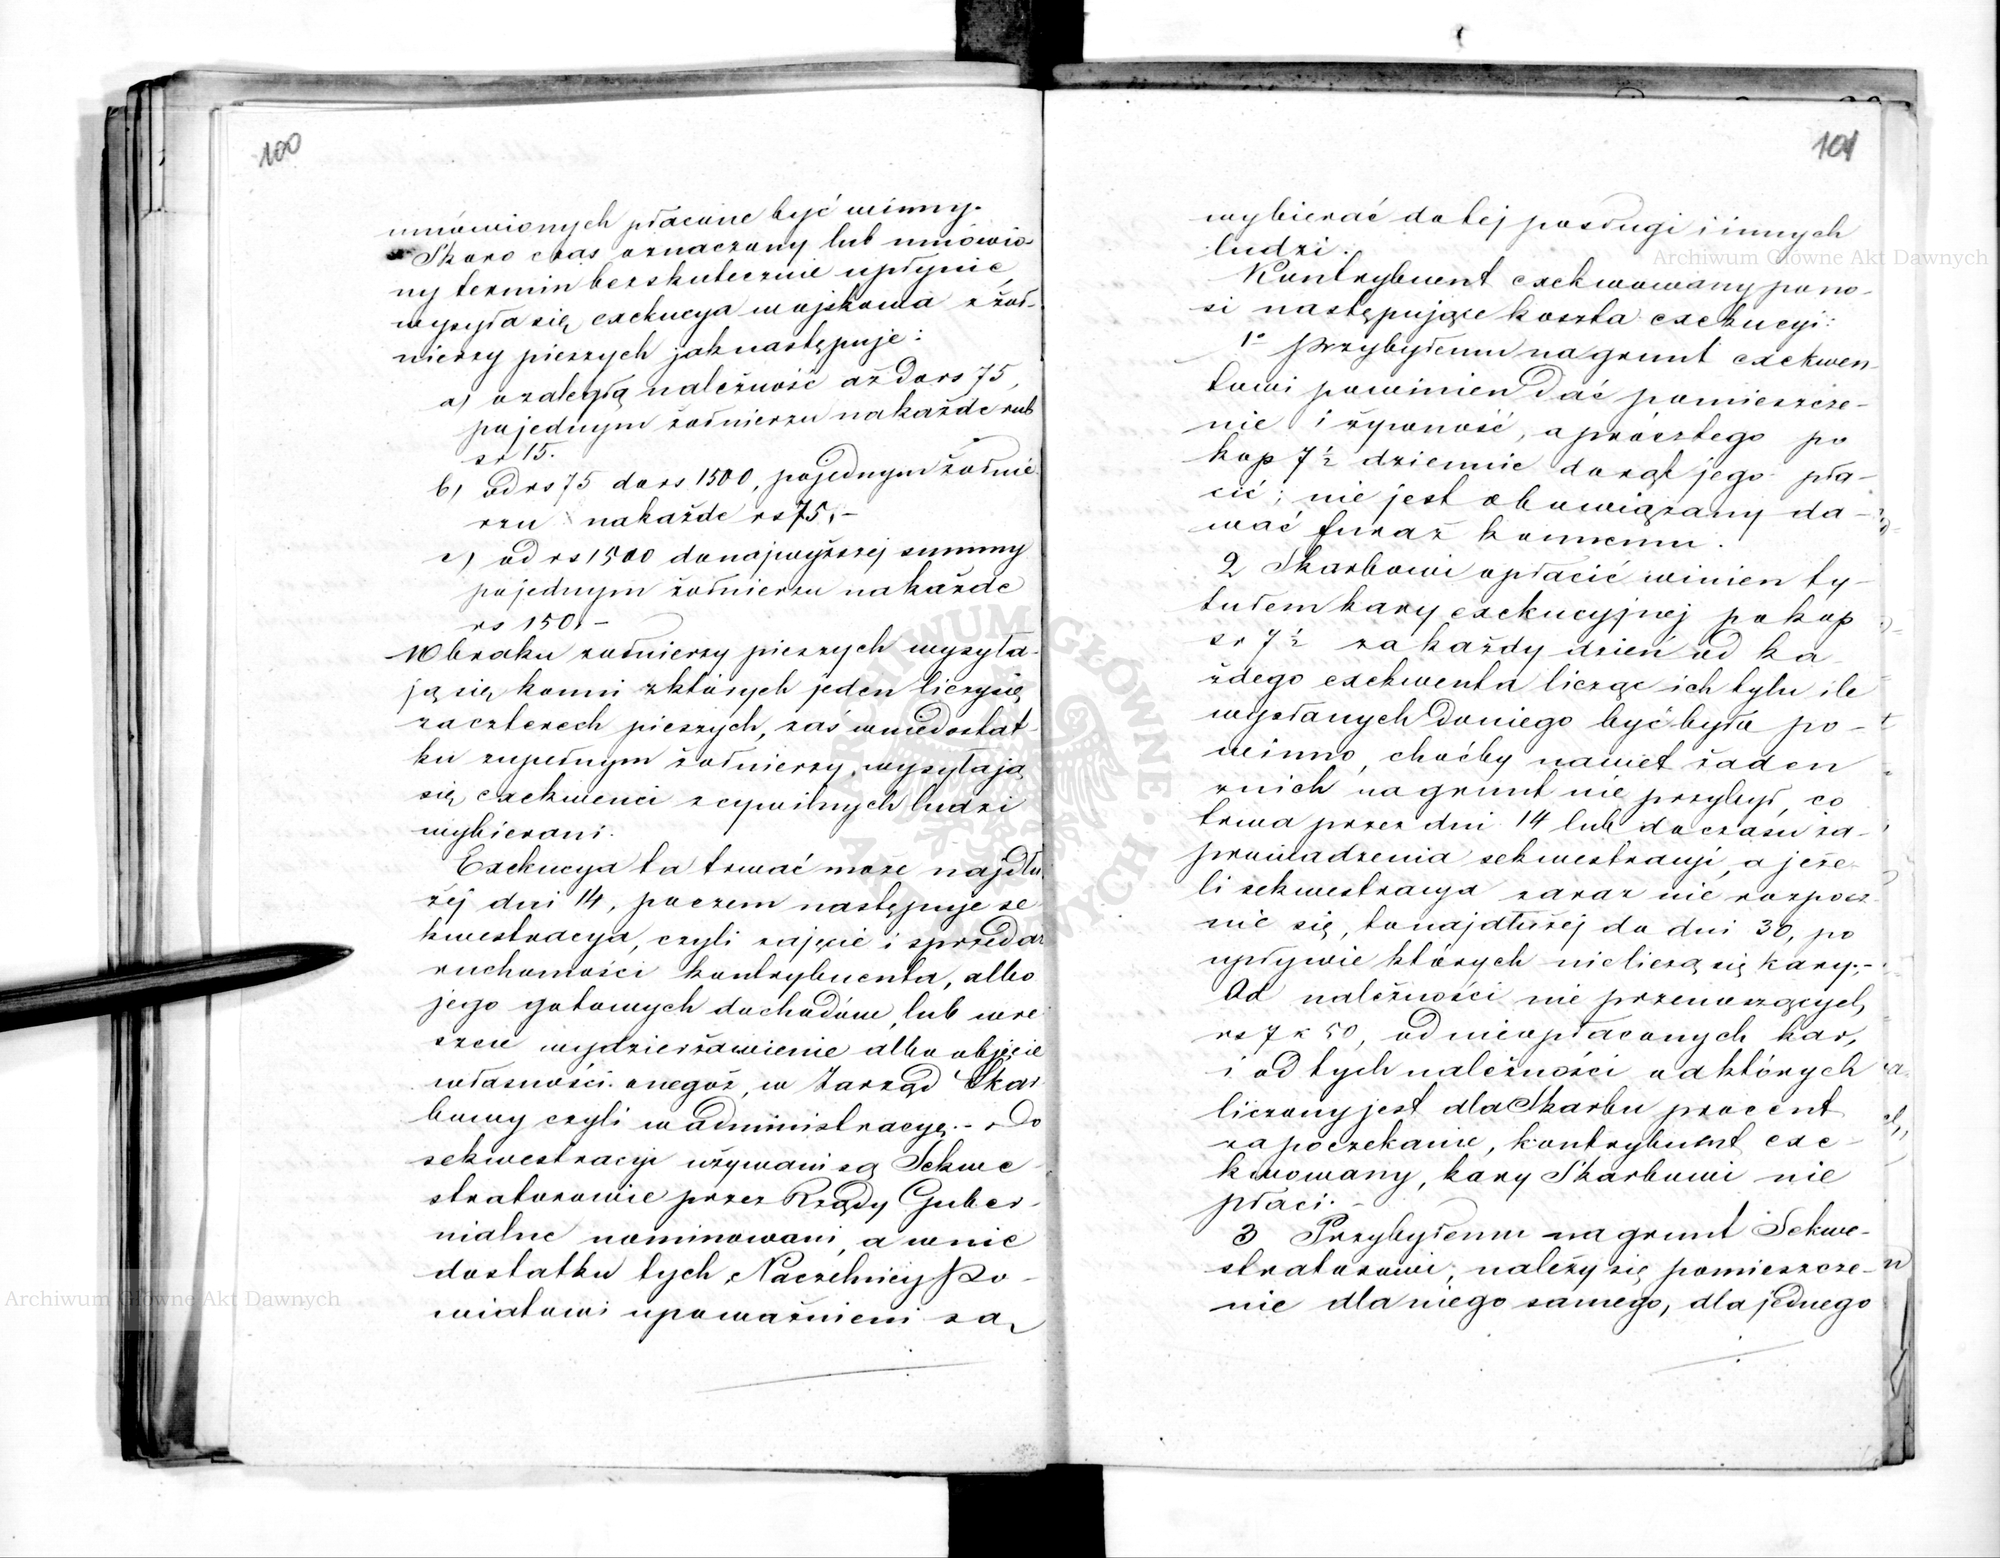 100
umówionych płacone być winny.
Skoro czas oznaczony lub umówio-
ny termin bezskutecznie upłynie,
wysyła się exekucya wojskowa z żoł-
nierzy pieszych jak następuje:
a) o zaległą należność aż do rs 75,
po jednym żołnierzu na każde rub
sr 15.
b) od rs 75 do rs 1500, po jednym żołnie-
rzu na każde rs 75,-
c) od rs 1500 do najwyższej summy
po jednym żołnierzu na każde
rs 150,-
W braku żołnierzy pieszych wysyła-
ją się konni z których jeden liczy się
za czterech pieszych, zaś w niedostat-
ku zupełnym żołnierzy, wysyłają
się exekwenci z cywilnych ludzi
wybierani.
Exekucya ta trwać może najdłu
żej dni 14, poczem następuje se
kwestracya, czyli zajęcie i sprzedaż
ruchomości kontrybuenta, albo
jego gotowych dochodów, lub wre
szcie wydzierżawienie albo objęcie
własności onegoż, w Zarząd Skar
bowy czyli w administracyę.- Do
sekwestracyi używani są Sekwe-
stratorowie przez Rządy Guber-
nialne nominowani, a w nie
dostatku tych, Naczelnicy Po-
wiatowi upoważnieni są
101
wybierać do tej posługi i innych
ludzi.
Kontrybuent exekwowany pono-
si następujące koszta exekucyi:
1° Przybyłemu na grunt exekwen-
towi powinien dać pomieszcze-
nie i żywność, a prócz tego po
kop 7½ dziennie do rąk jego pła-
cić; nie jest obowiązany da-
wać furaż konnemu.
2 Skarbowi opłacić winien ty-
tułem kary exekucyjnej po kop
sr 7½ za każdy dzień od ka-
żdego exekwenta licząc ich tylu ile
wysłanych do niego być było po-
winno, choćby nawet żaden
z nich na grunt nie przybył, co
trwa przez dni 14 lub do czasu za-
prowadzenia sekwestracyi, a jeże-
li sekwestracya zaraz nie rozpocz-
nie się, to najdłużej do dni 30, po
upływie których nie liczą się kary.-
Od należności nie przenoszących
rs 7 k 50, od nieopłaconych kar,
i od tych należności od których
liczony jest dla Skarbu procent
za poczekanie, kontrybuent exe-
kwowany, kary Skarbowi nie
płaci.-
3 Przybyłemu na grunt Sekwe-
stratorowi, należy się pomieszcze-
nie dla niego samego, dla jednego
Archiwum Główne Akt Dawnych
Archiwum Główne Akt Dawnych
ARCHIWUM GŁÓWNE AKT DAWNYCH